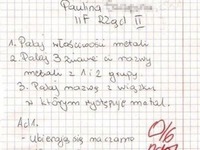 Paulina
II F Rząd II
1. Podaj właściwości metali
2. Podaj 3 znane ci nazwy
metali z 1 i 2 grupy.
3. Podaj nazwę związku
w którym występuje metal.
Ad1.
- Ubierają się na czarno
0/6